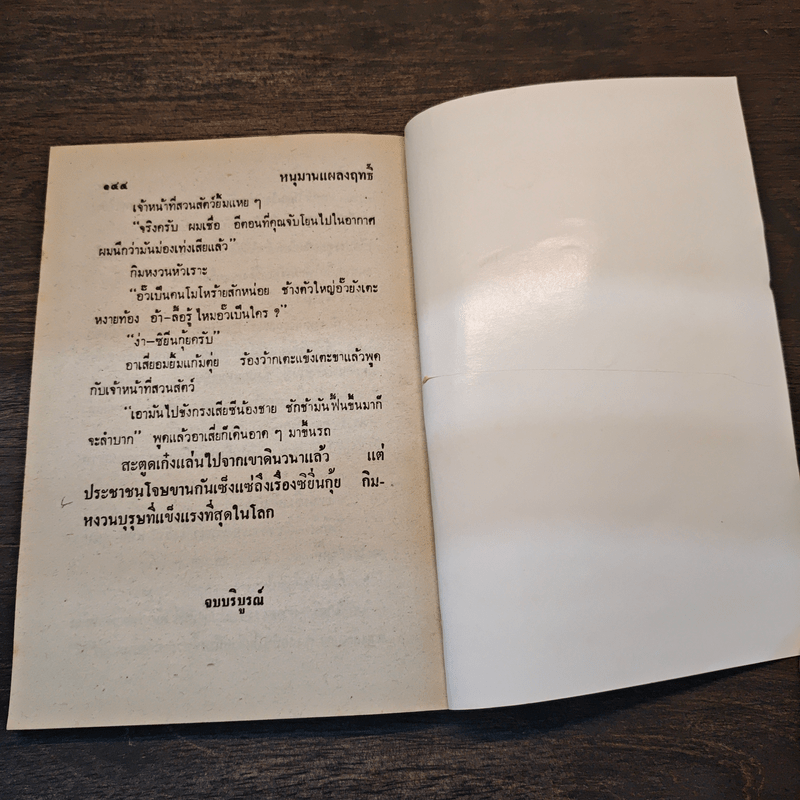 ๑๔๔ หนุมานแผลงฤทธิ์
เจ้าหน้าที่สวนสัตว์ยิ้มแหย ๆ
“จริงครับ ผมเชื่อ อีตอนที่คุณจับโยนไปในอากาศ
ผมนึกว่ามันม่องเท่งเสียแล้ว”
กิมหงวนหัวเราะ
“อั๊วเป็นคนโมโหร้ายสักหน่อย ช้างตัวใหญ่อั๊วยังเตะ
หงายท้อง อ้า—ลื้อรู้ไหมอั๊วเป็นใคร ?”
“ง่า—ซิยิ่นกุ้ยครับ”
อาเสี่ยอมยิ้มแก้มตุ่ย ร้องว้ากเตะแข้งเตะขาแล้วพูด
กับเจ้าหน้าที่สวนสัตว์
“เอามันไปขังกรงเสียซีน้องชาย ชักช้ามันฟื้นขึ้นมาก็
จะลำบาก” พูดแล้วอาเสี่ยก็เดินอาด ๆ มาขึ้นรถ
สะตูดเก๋งแล่นไปจากเขาดินวนาแล้ว แต่
ประชาชนโจษขานกันเซ็งแซ่ถึงเรื่องซิยิ่นกุ้ย กิม-
หงวนบุรุษที่แข็งแรงที่สุดในโลก
จบบริบูรณ์